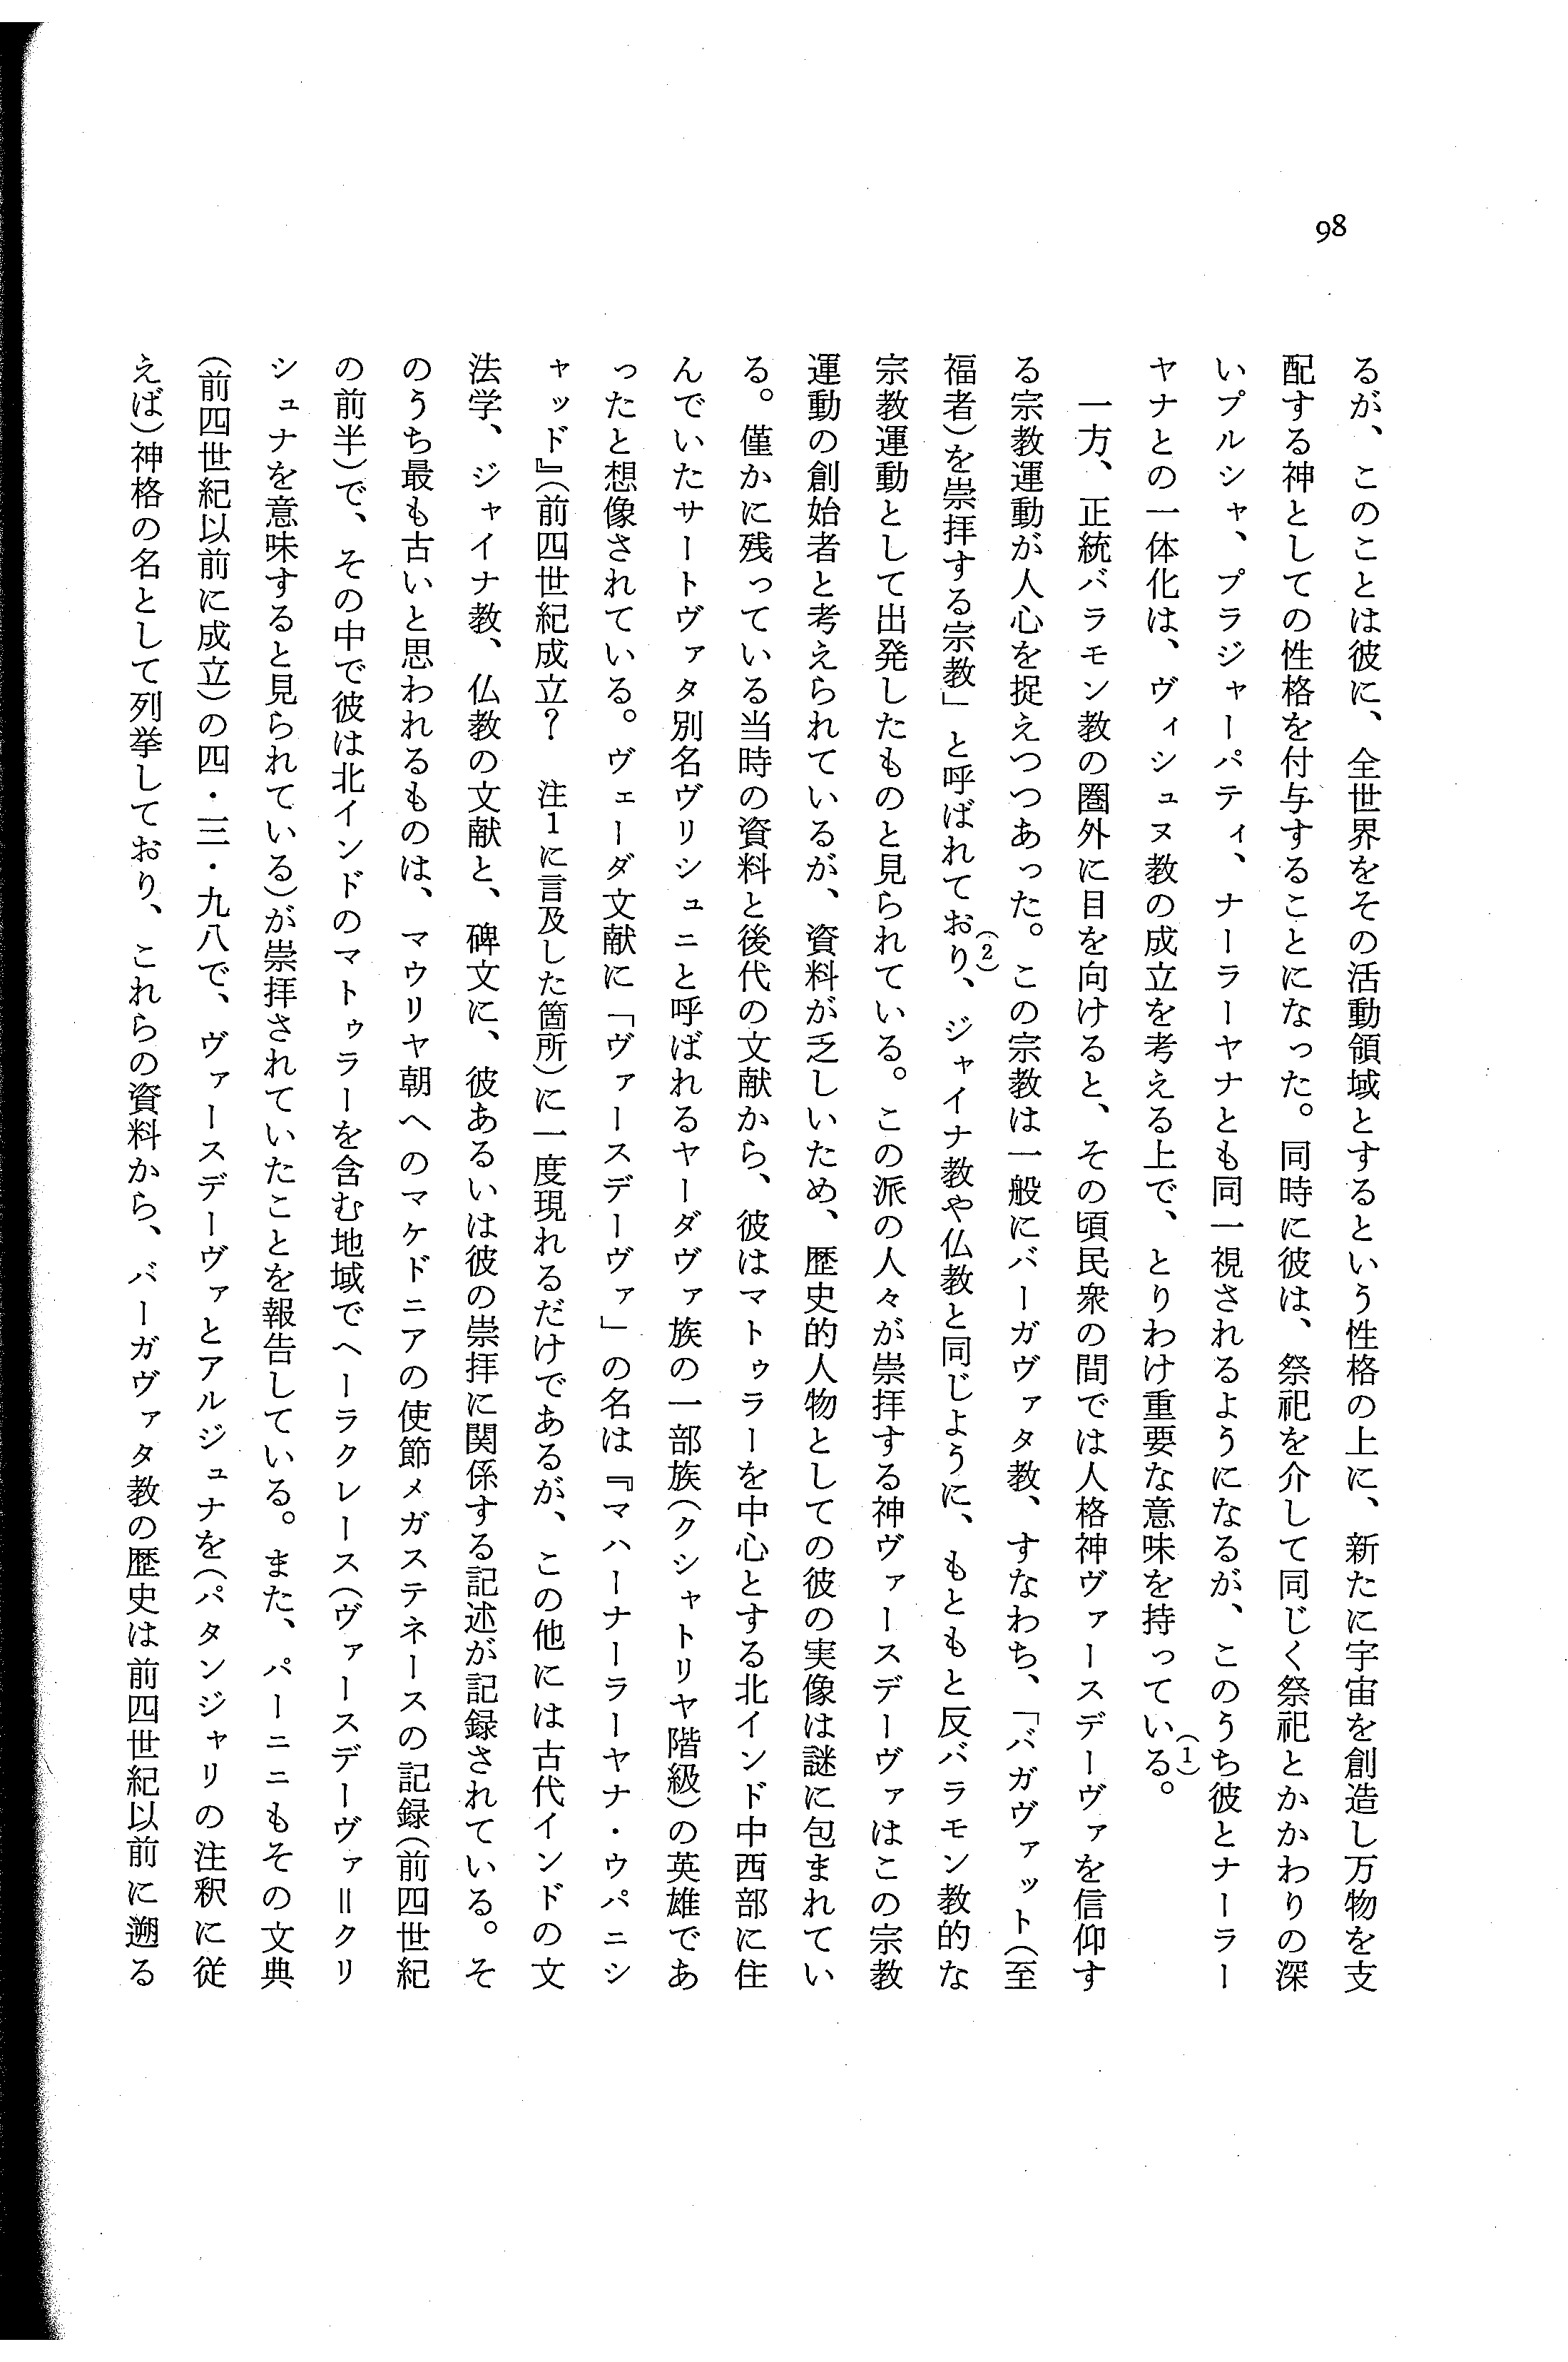 98
るが、このことは彼に、全世界をその活動領域とするという性格の上に、新たに宇宙を創造し万物を支
配する神としての性格を付与することになった。同時に彼は、祭祀を介して同じく祭祀とかかわりの深
いプルシャ、プラジャーパティ、ナーラーヤナとも同一視されるようになるが、このうち彼とナーラー
ヤナとの一体化は、ヴィシュヌ教の成立を考える上で、とりわけ重要な意味を持っている。(1)
一方、正統バラモン教の圏外に目を向けると、その頃民衆の間では人格神ヴァースデーヴァを信仰す
る宗教運動が人心を捉えつつあった。この宗教は一般にバーガヴァタ教、すなわち、「バガヴァット(至
福者)を崇拝する宗教」と呼ばれており、(2)ジャイナ教や仏教と同じように、もともと反バラモン教的な
宗教運動として出発したものと見られている。この派の人々が崇拝する神ヴァースデーヴァはこの宗教
運動の創始者と考えられているが、資料が乏しいため、歴史的人物としての彼の実像は謎に包まれてい
る。僅かに残っている当時の資料と後代の文献から、彼はマトゥラーを中心とする北インド中西部に住
んでいたサートヴァタ別名ヴリシュニと呼ばれるヤーダヴァ族の一部族(クシャトリヤ階級)の英雄であ
ったと想像されている。ヴェーダ文献に「ヴァースデーヴァ」の名は『マハーナーラーヤナ・ウパニシ
ャッド』(前四世紀成立? 注1に言及した箇所)に一度現れるだけであるが、この他には古代インドの文
法学、ジャイナ教、仏教の文献と、碑文に、彼あるいは彼の崇拝に関係する記述が記録されている。そ
のうち最も古いと思われるものは、マウリヤ朝へのマケドニアの使節メガステネースの記録(前四世紀
の前半)で、その中で彼は北インドのマトゥラーを含む地域でヘーラクレース(ヴァースデーヴァ=クリ
シュナを意味すると見られている)が崇拝されていたことを報告している。また、パーニニもその文典
(前四世紀以前に成立)の四・三・九八で、ヴァースデーヴァとアルジュナを(パタンジャリの注釈に従
えば)神格の名として列挙しており、これらの資料から、バーガヴァタ教の歴史は前四世紀以前に遡る